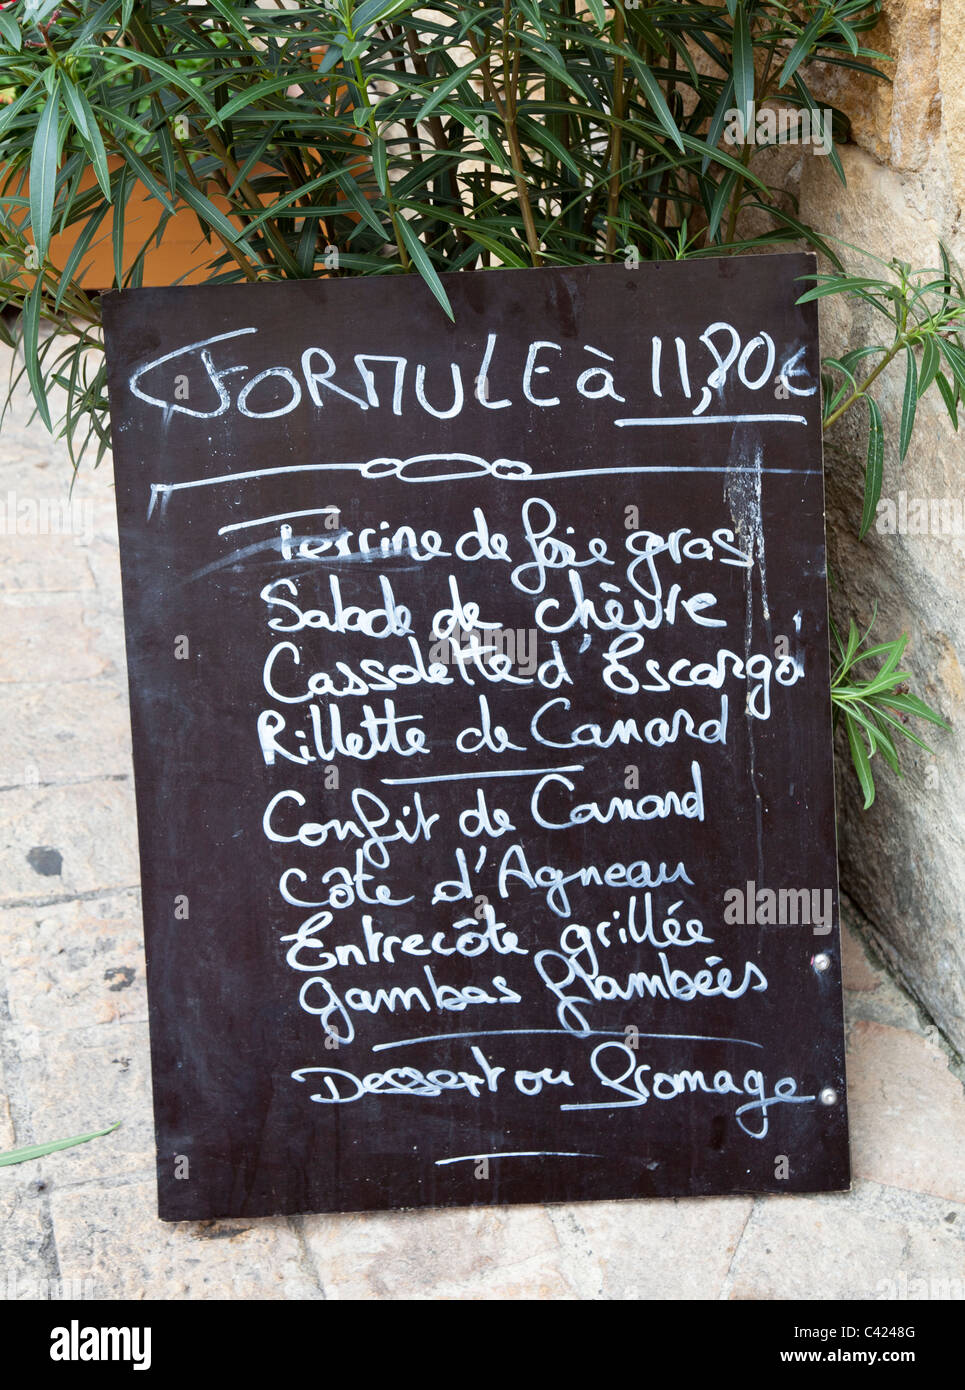 FORMULE à 11,80€
Terrine de foie gras
Salade de chèvre
Cassolette d'Escargo
Rillette de Canard
Confit de Canard
Côte d'Agneau
Entrecôte grillée
gambas flambées
Dessert ou fromage
alamy
Image ID: C4248G
www.alamy.com